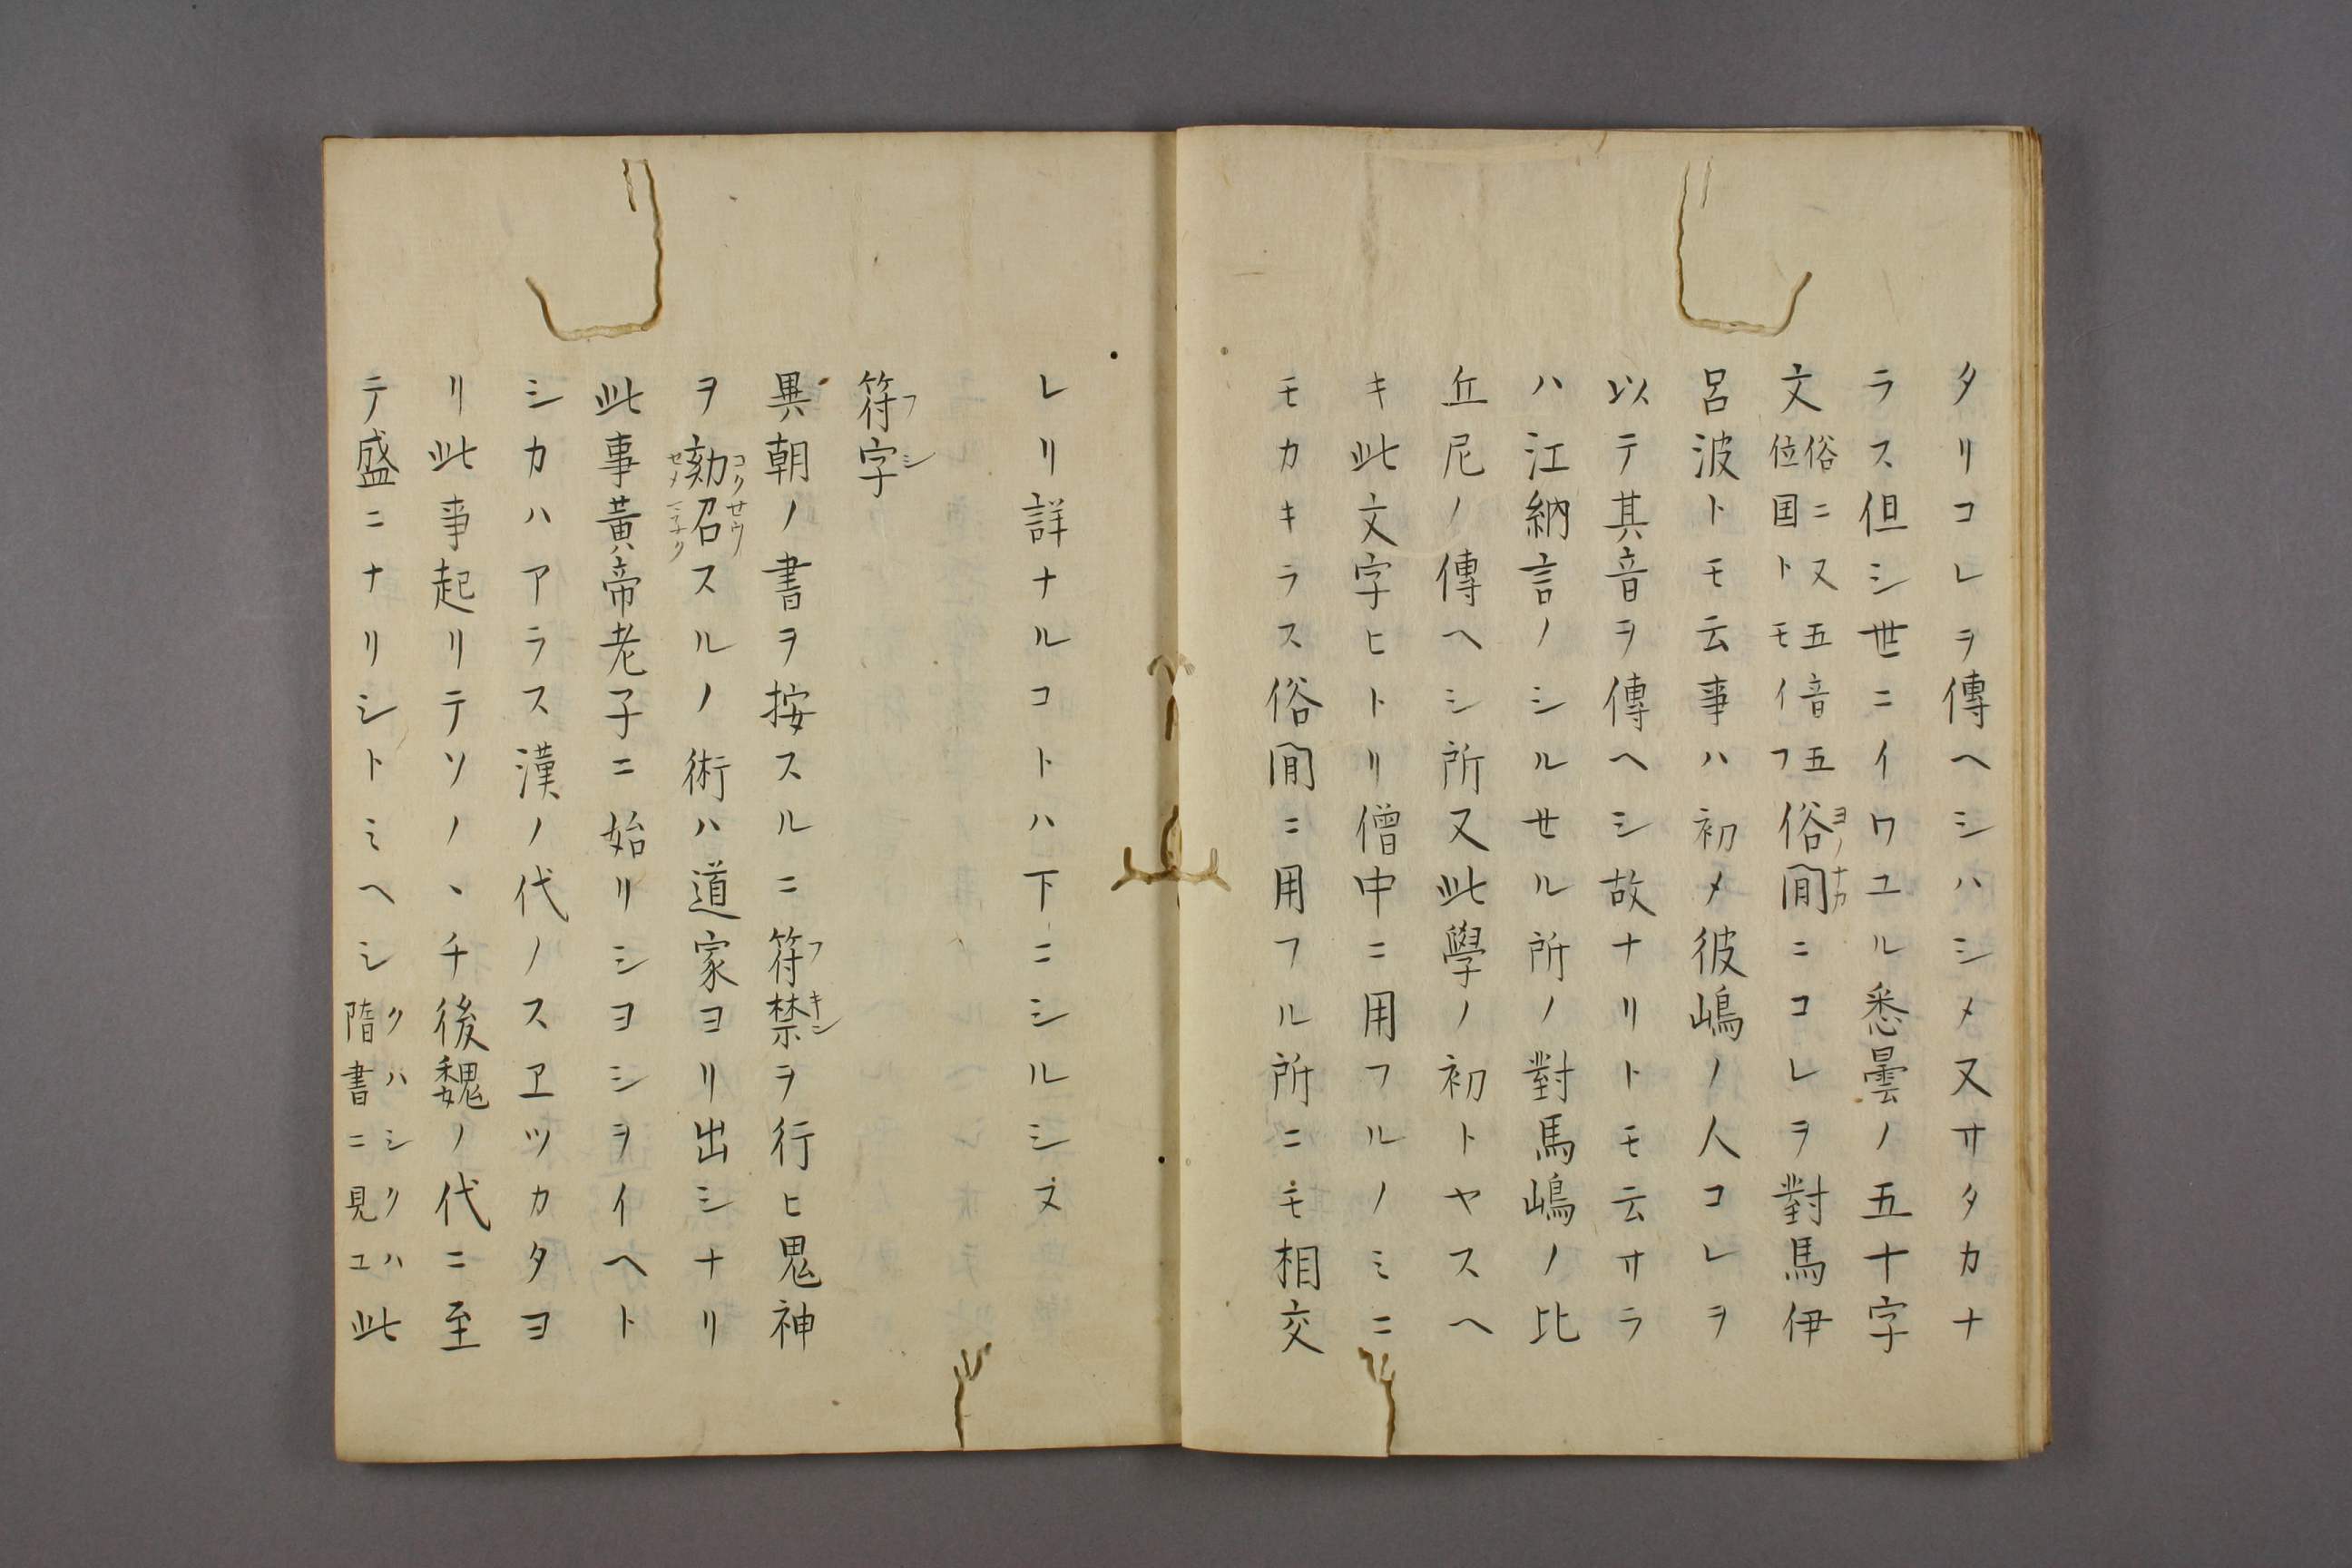 タリコレヲ傳ヘシハシメ又サタカナ
ラス但シ世ニイワユル悉曇ノ五十字
文俗ニ又五音五位国トモイフ俗間ニコレヲ對馬伊
ヨノナカ
呂波トモ云事ハ初メ彼嶋ノ人コレヲ
以テ其音ヲ傳ヘシ故ナリトモ云サラ
ハ江納言ノシルせル所ノ對馬嶋ノ比
丘尼ノ傳ヘシ所又此學ノ初トヤスヘ
キ此文字ヒトリ僧中ニ用フルノミニ
モカキラス俗間ニ用フル所ニモ相交
レリ詳ナルコトハ下ニシルシヌ
符字
フシ
異朝ノ書ヲ按スルニ符禁ヲ行ヒ鬼神
フキン
ヲ劾召スルノ術ハ道家ヨリ出シナリ
コクせウ
せメマ子ク
此事黃帝老子ニ始リシヨシヲイヘト
シカハアラス漢ノ代ノスヱツカタヨ
リ此事起リテソノヽチ後魏ノ代ニ至
テ盛ニナリシトミヘシクハシクハ隋書ニ見ユ此